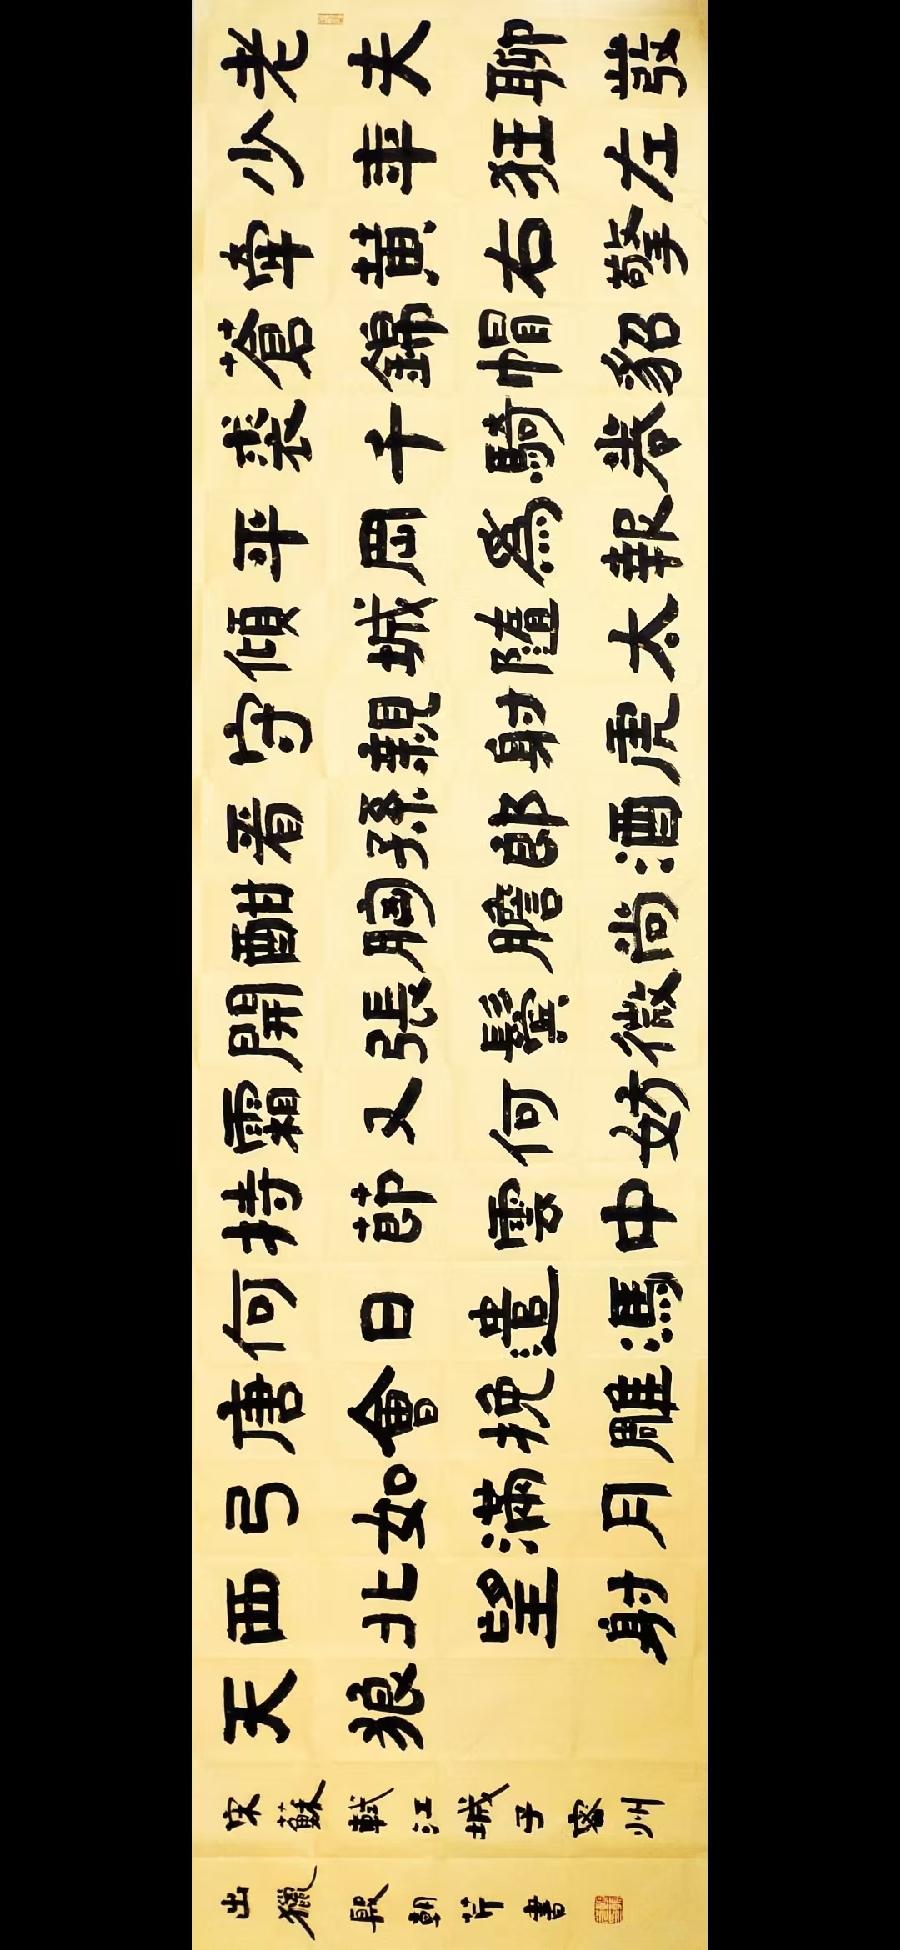 老夫聊發
少年狂左
牽黃右擎
蒼錦帽貂
裘千騎卷
平岡為報
傾城隨太
守親射虎
看孫郎酒
酣胸膽尚
開張鬢微
霜又何妨
持節雲中
何日遣馮
唐會挽雕
弓如滿月
西北望射
天狼
宋蘇軾江城子密州
出獵殷朝芹書